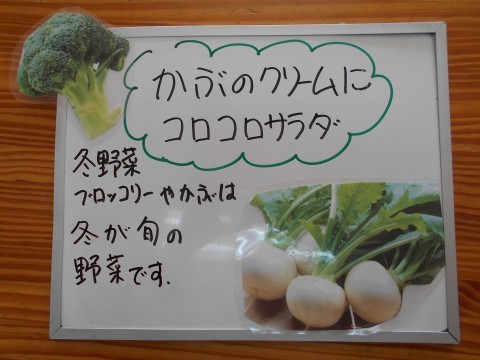 かぶのクリームに
コロコロサラダ
冬野菜
ブロッコリーやかぶは
冬が旬の
野菜です.